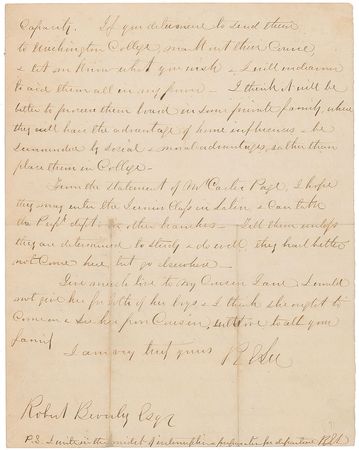 Capacity. If you determine to send them
to Washington College, mark out their Course
& let me know what you wish & I will endeavour
to aid them all in my power — I think it will be
better to procure them board in some private family, where
they will have the advantage of home influences & be
surrounded by social & moral advantages, rather than
place them in College —
From the statement of Mr Carter Page, I hope
they may enter the Junior Class in Latin &
the dept. in other branches — Tell them unless
they are determined to study & do well, they had better
not come here but go elsewhere —
Give much love to my Cousin Jane. I would
not give her for both of her boys & I think she ought to
come & see her poor Cousin, with love to all your
family
I am very truly yours R E Lee
Robert Beverly Esqr
P.S. I write in the midst of interruption & preparation for departure REL